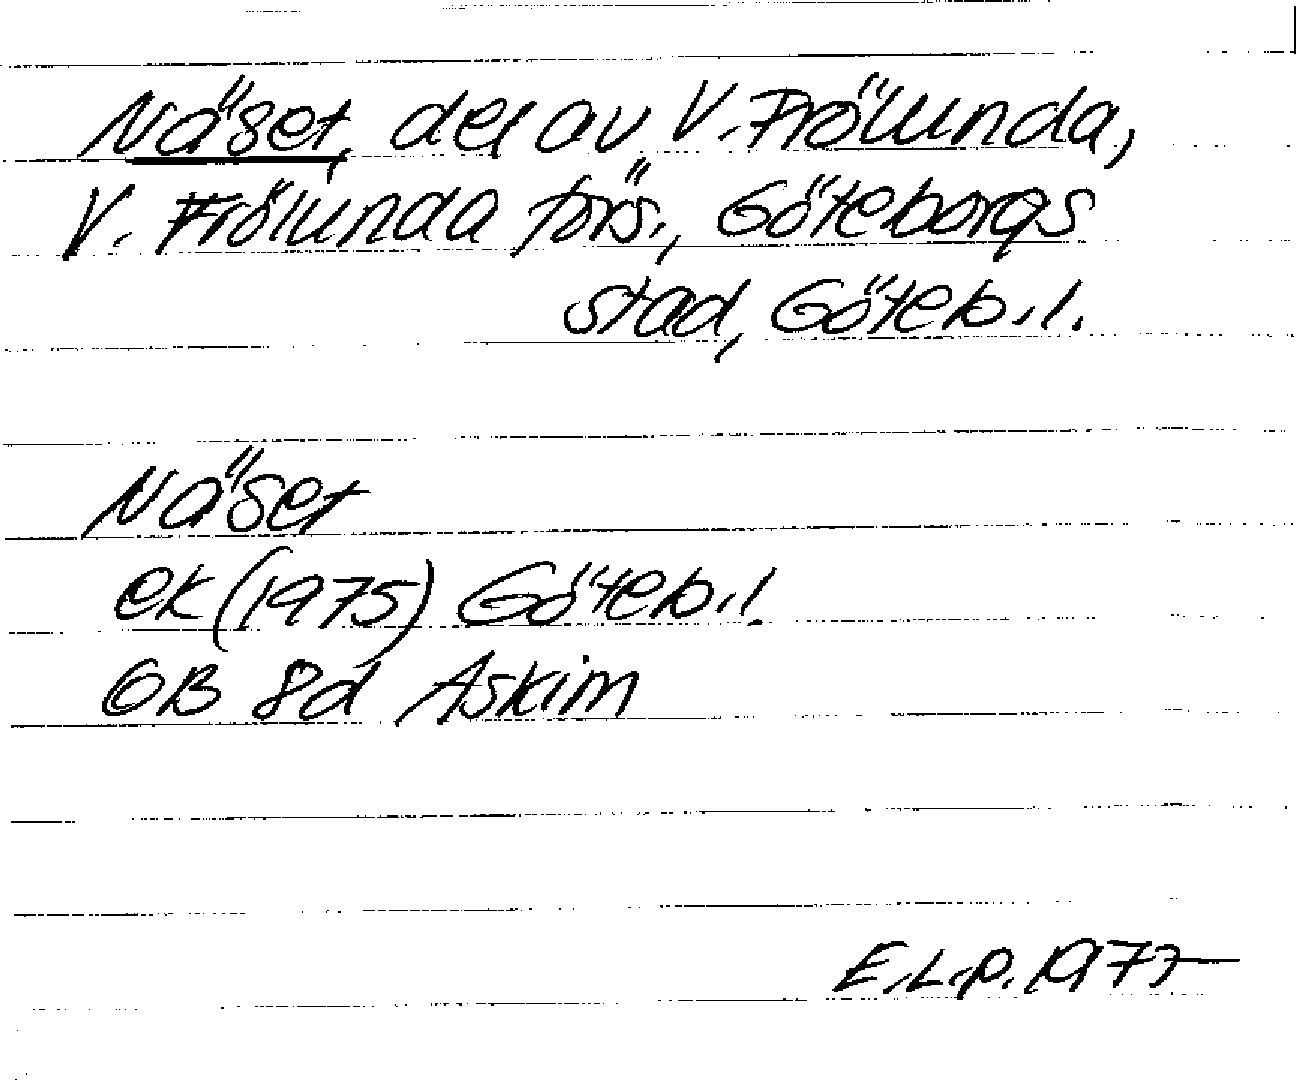 Näset, del av V. Frölunda,
V. Frölunda förs., Göteborgs
stad, Göteb.l.
Näset
ek (1975) Göteb.l.
GB 8d Askim
E.L.p. 1977